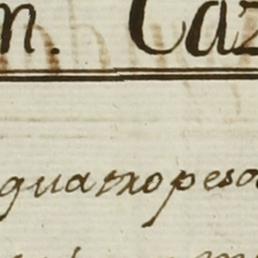 n. Caz
quatro peso